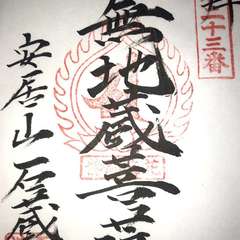 拝
二十三番
無地蔵菩薩
安居山 石蔵